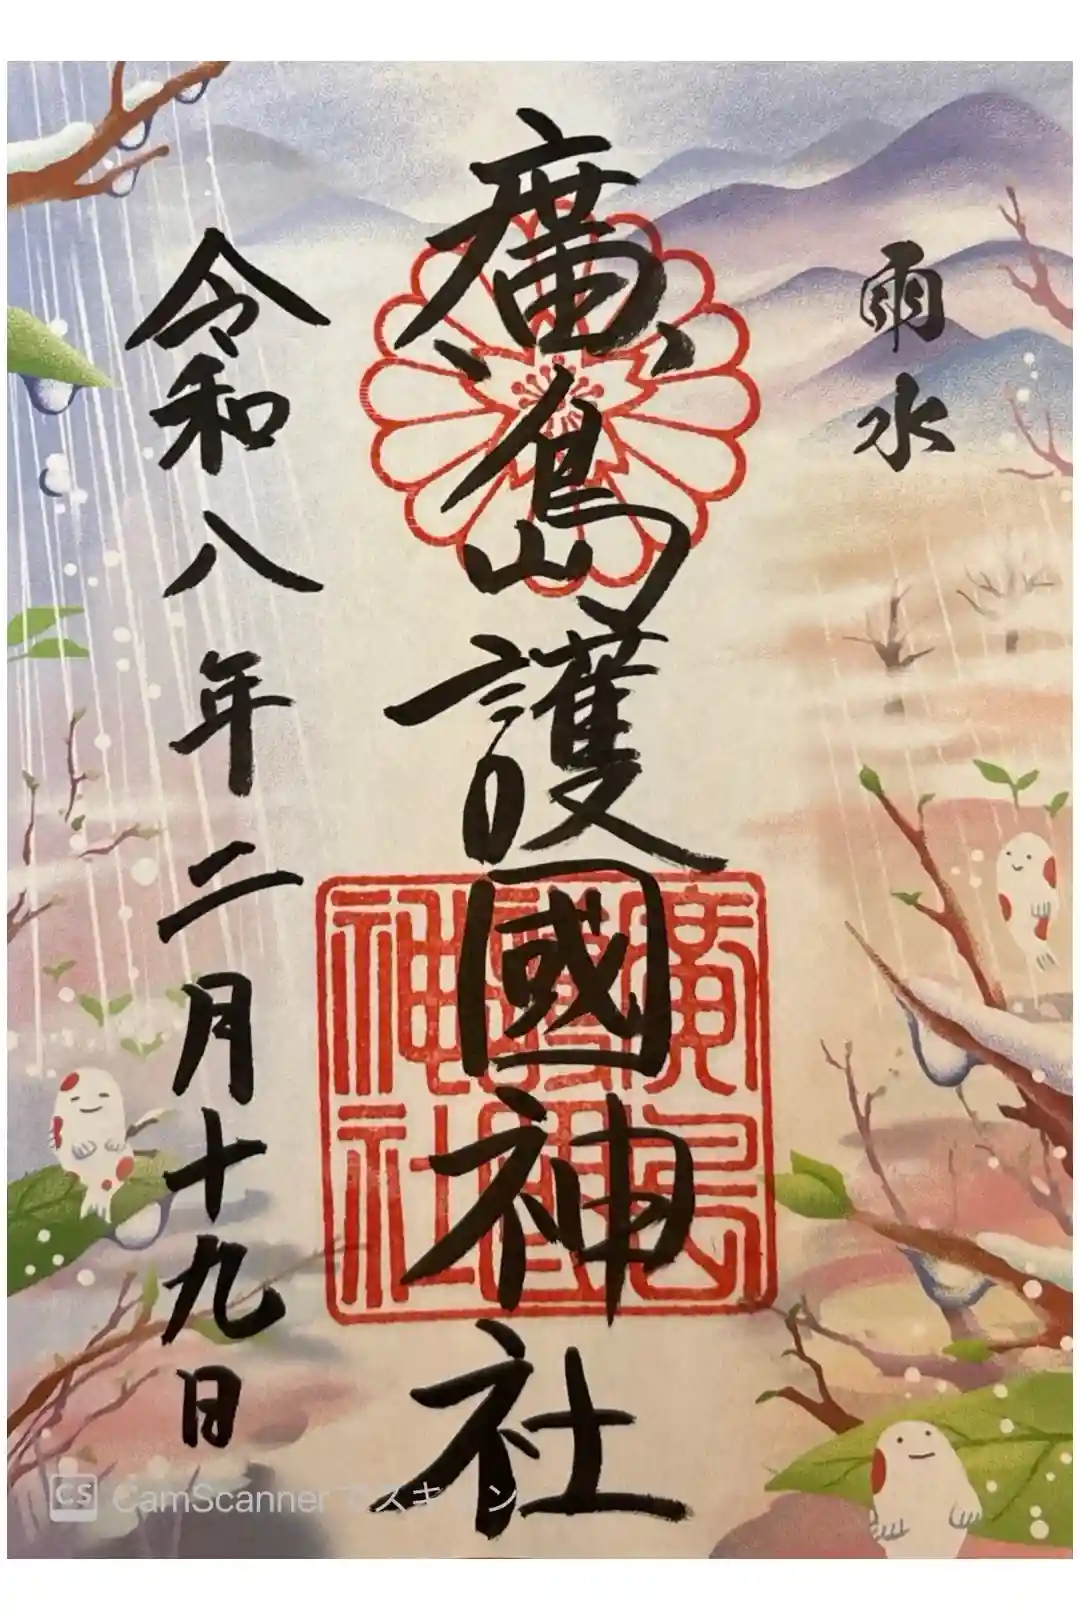 雨水
廣島護國神社
令和八年二月十九日
廣島護國神社
CS CamScannerでスキャン